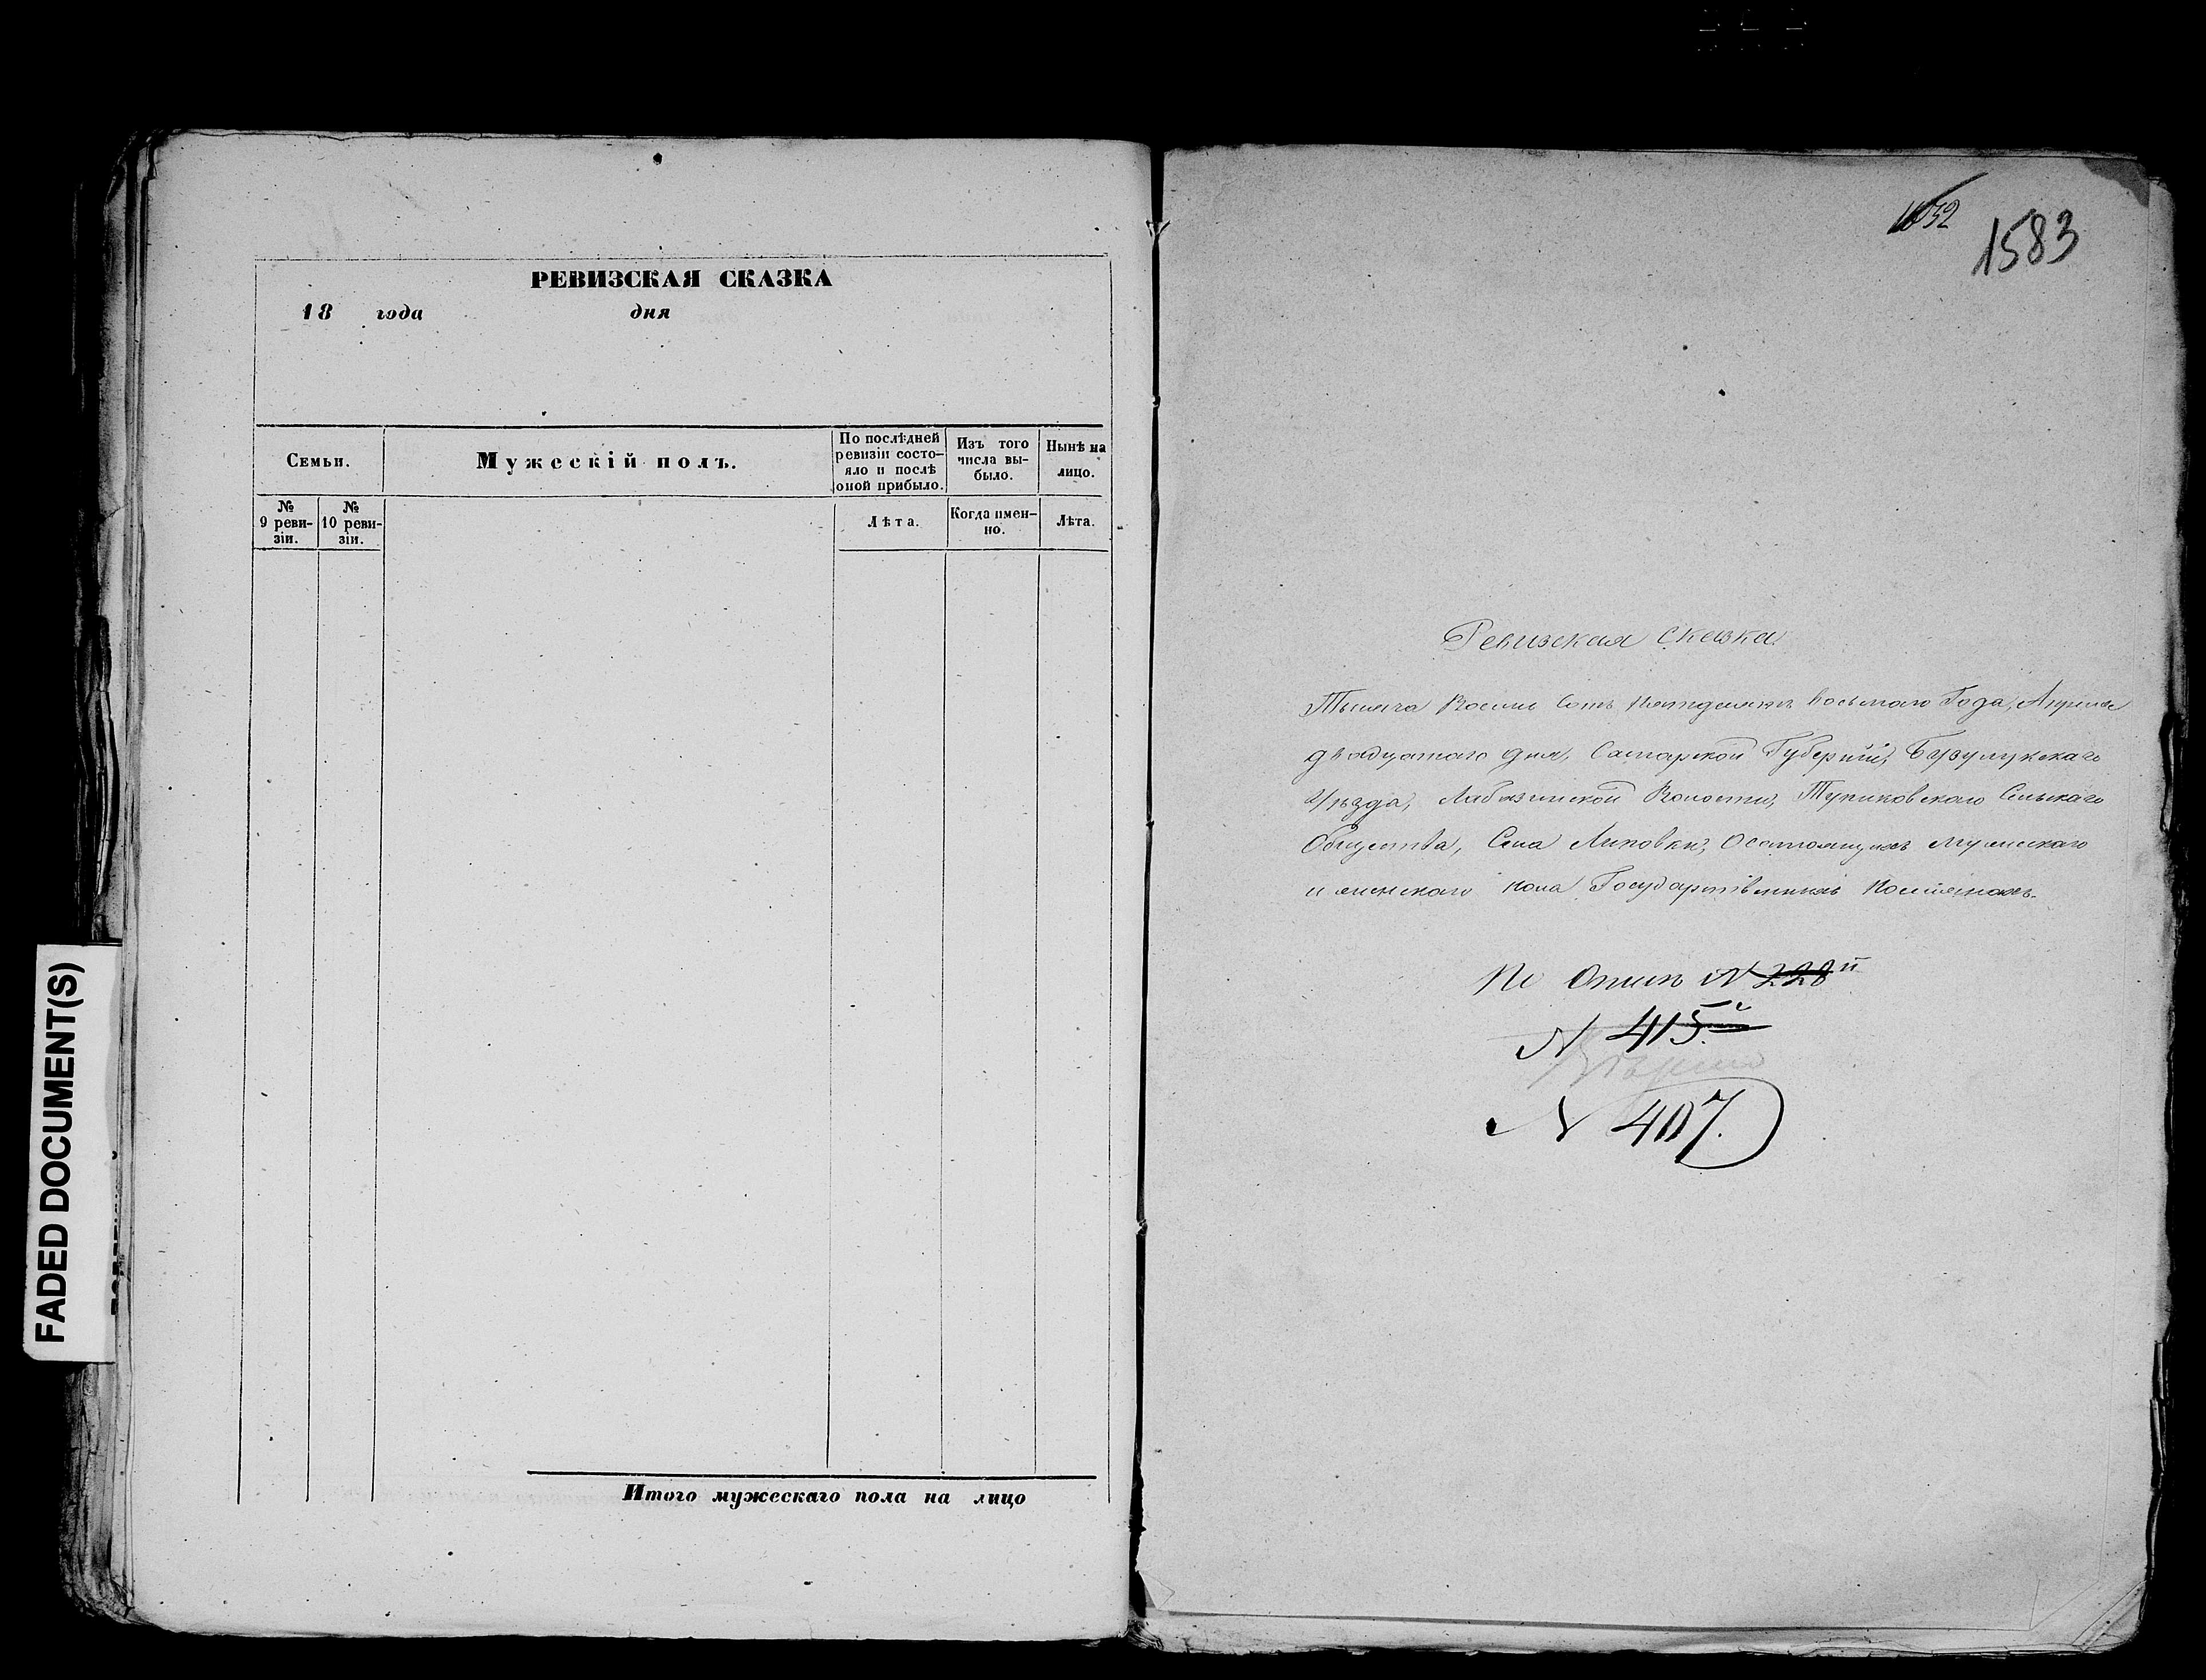 FADED DOCUMENT(S)
РЕВИЗСКАЯ СКАЗКА
18 года дня
Семьи.
Мужескій полъ.
По послѣдней ревизіи состо-яло и послѣ оной прибыло.
Изъ того числа вы-было.
Нынѣ на лицо.
№ 9 реви-зіи.
№ 10 реви-зіи.
Лѣта.
Когда имен-но.
Лѣта.
Итого мужескаго пола на лицо
1032
1583
Ревизская Сказка
Тысяча Восемь Сотъ Пятдесятъ восьмаго Года, Апреля
двадцатаго дня, Самарской Губерніи, Бузулукскаго
Уѣзда, Лабазинской Волости, Тупиковскаго Сельскаго
Общества, Села Липовки, О состоящихъ мужескаго
и женскаго пола Государственныхъ Поселянахъ.
По Описи № 228й
№ 415й
№ 407.